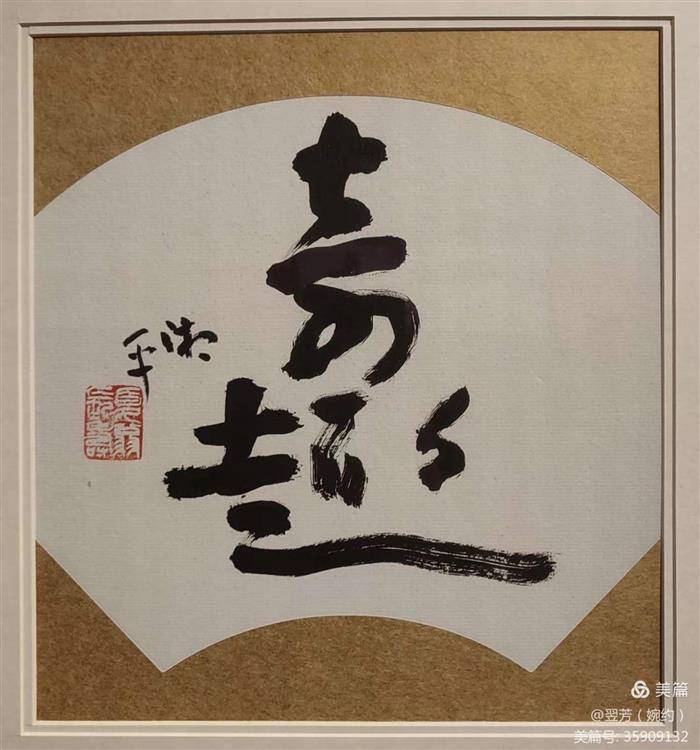 奇趣
湘平
美篇
@翌芳（婉约）
美篇号: 35909132